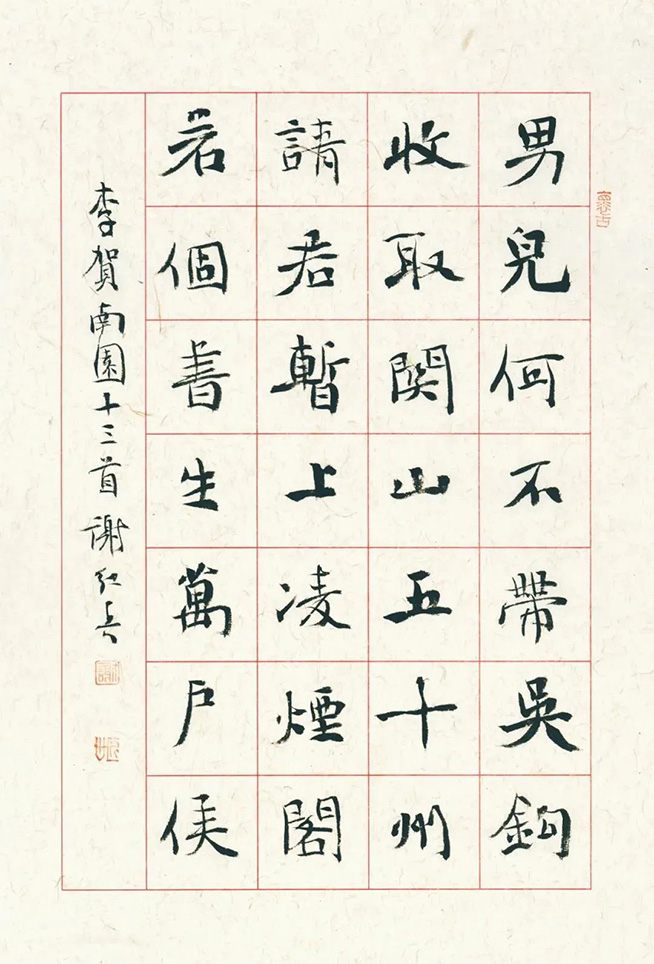 男兒何不帶吳鉤
收取関山五十州
請君暫上凌煙閣
若個書生萬戶侯
李賀南園十三首 謝紅兵